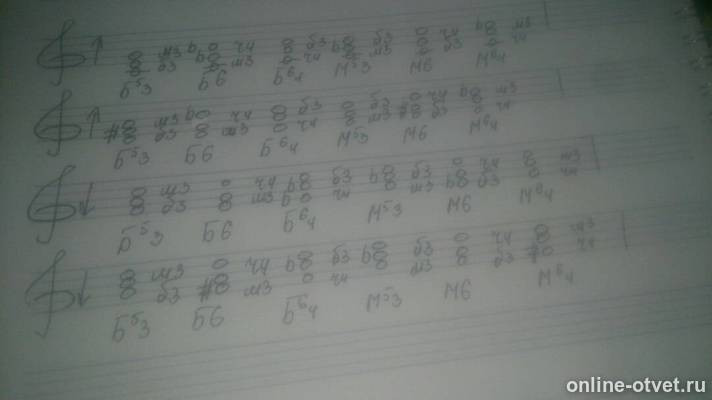 м3 ч4 б3 б3 ч4 м3
б3 м3 ч4 м3 б3 ч4
Б53 Б6 Б64 М53 М6 М64
м3 ч4 б3 б3 ч4 м3
б3 м3 ч4 м3 б3 ч4
Б53 Б6 Б64 М53 М6 М64
м3 ч4 б3 б3 ч4 м3
б3 м3 ч4 м3 б3 ч4
Б53 Б6 Б64 М53 М6 М64
м3 ч4 б3 б3 ч4 м3
б3 м3 ч4 м3 б3 ч4
Б53 Б6 Б64 М53 М6 М64
online-otvet.ru